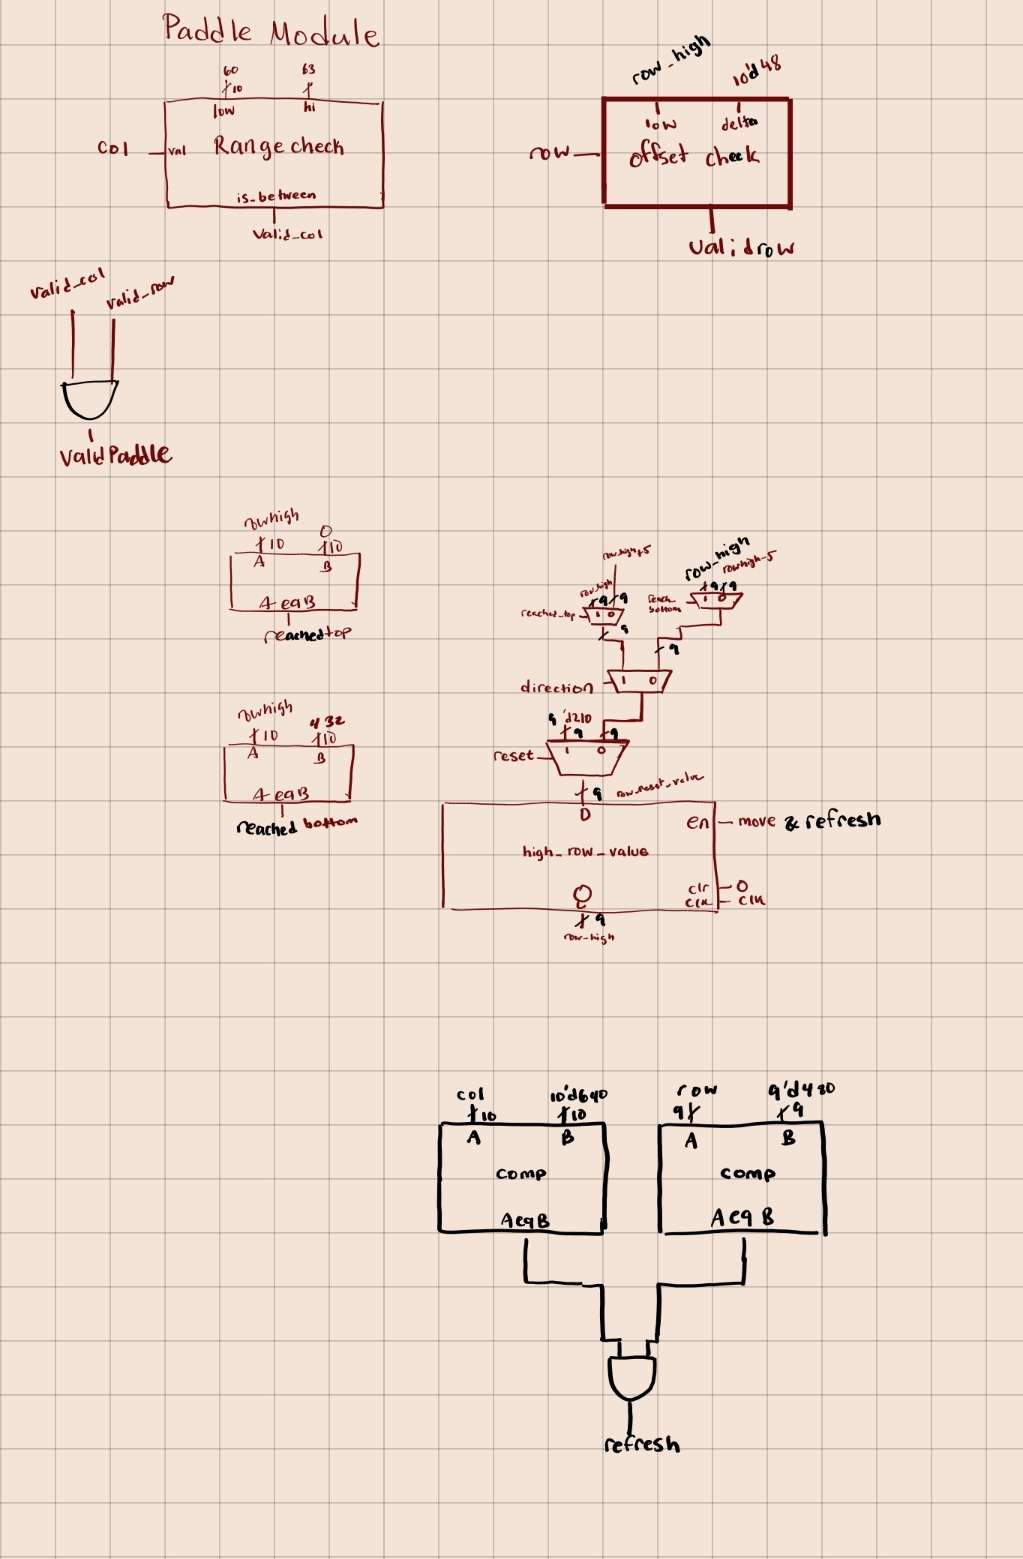 Paddle Module
60
10
63
low
hi
col
val
Range check
is_between
Valid_col
row_high
10'd 48
low
delta
row
offset check
Valid row
valid_col
valid_row
Valid Paddle
rowhigh
0
10
10
A
B
A eq B
reached top
rowhigh
432
10
10
A
B
A eq B
reached bottom
row_high
rowhigh+5
rowhigh-5
row_high
9
9
9
9
reached_top
1
0
reach
bottom
1
0
9
9
direction
1
0
9'd210
9
9
reset
1
0
9
row_reset_value
D
en
move & refresh
high_row_value
Q
clr
0
clk
clk
9
row_high
col
10'd640
10
10
A
B
comp
A eq B
row
9'd480
9
9
A
B
comp
A eq B
refresh